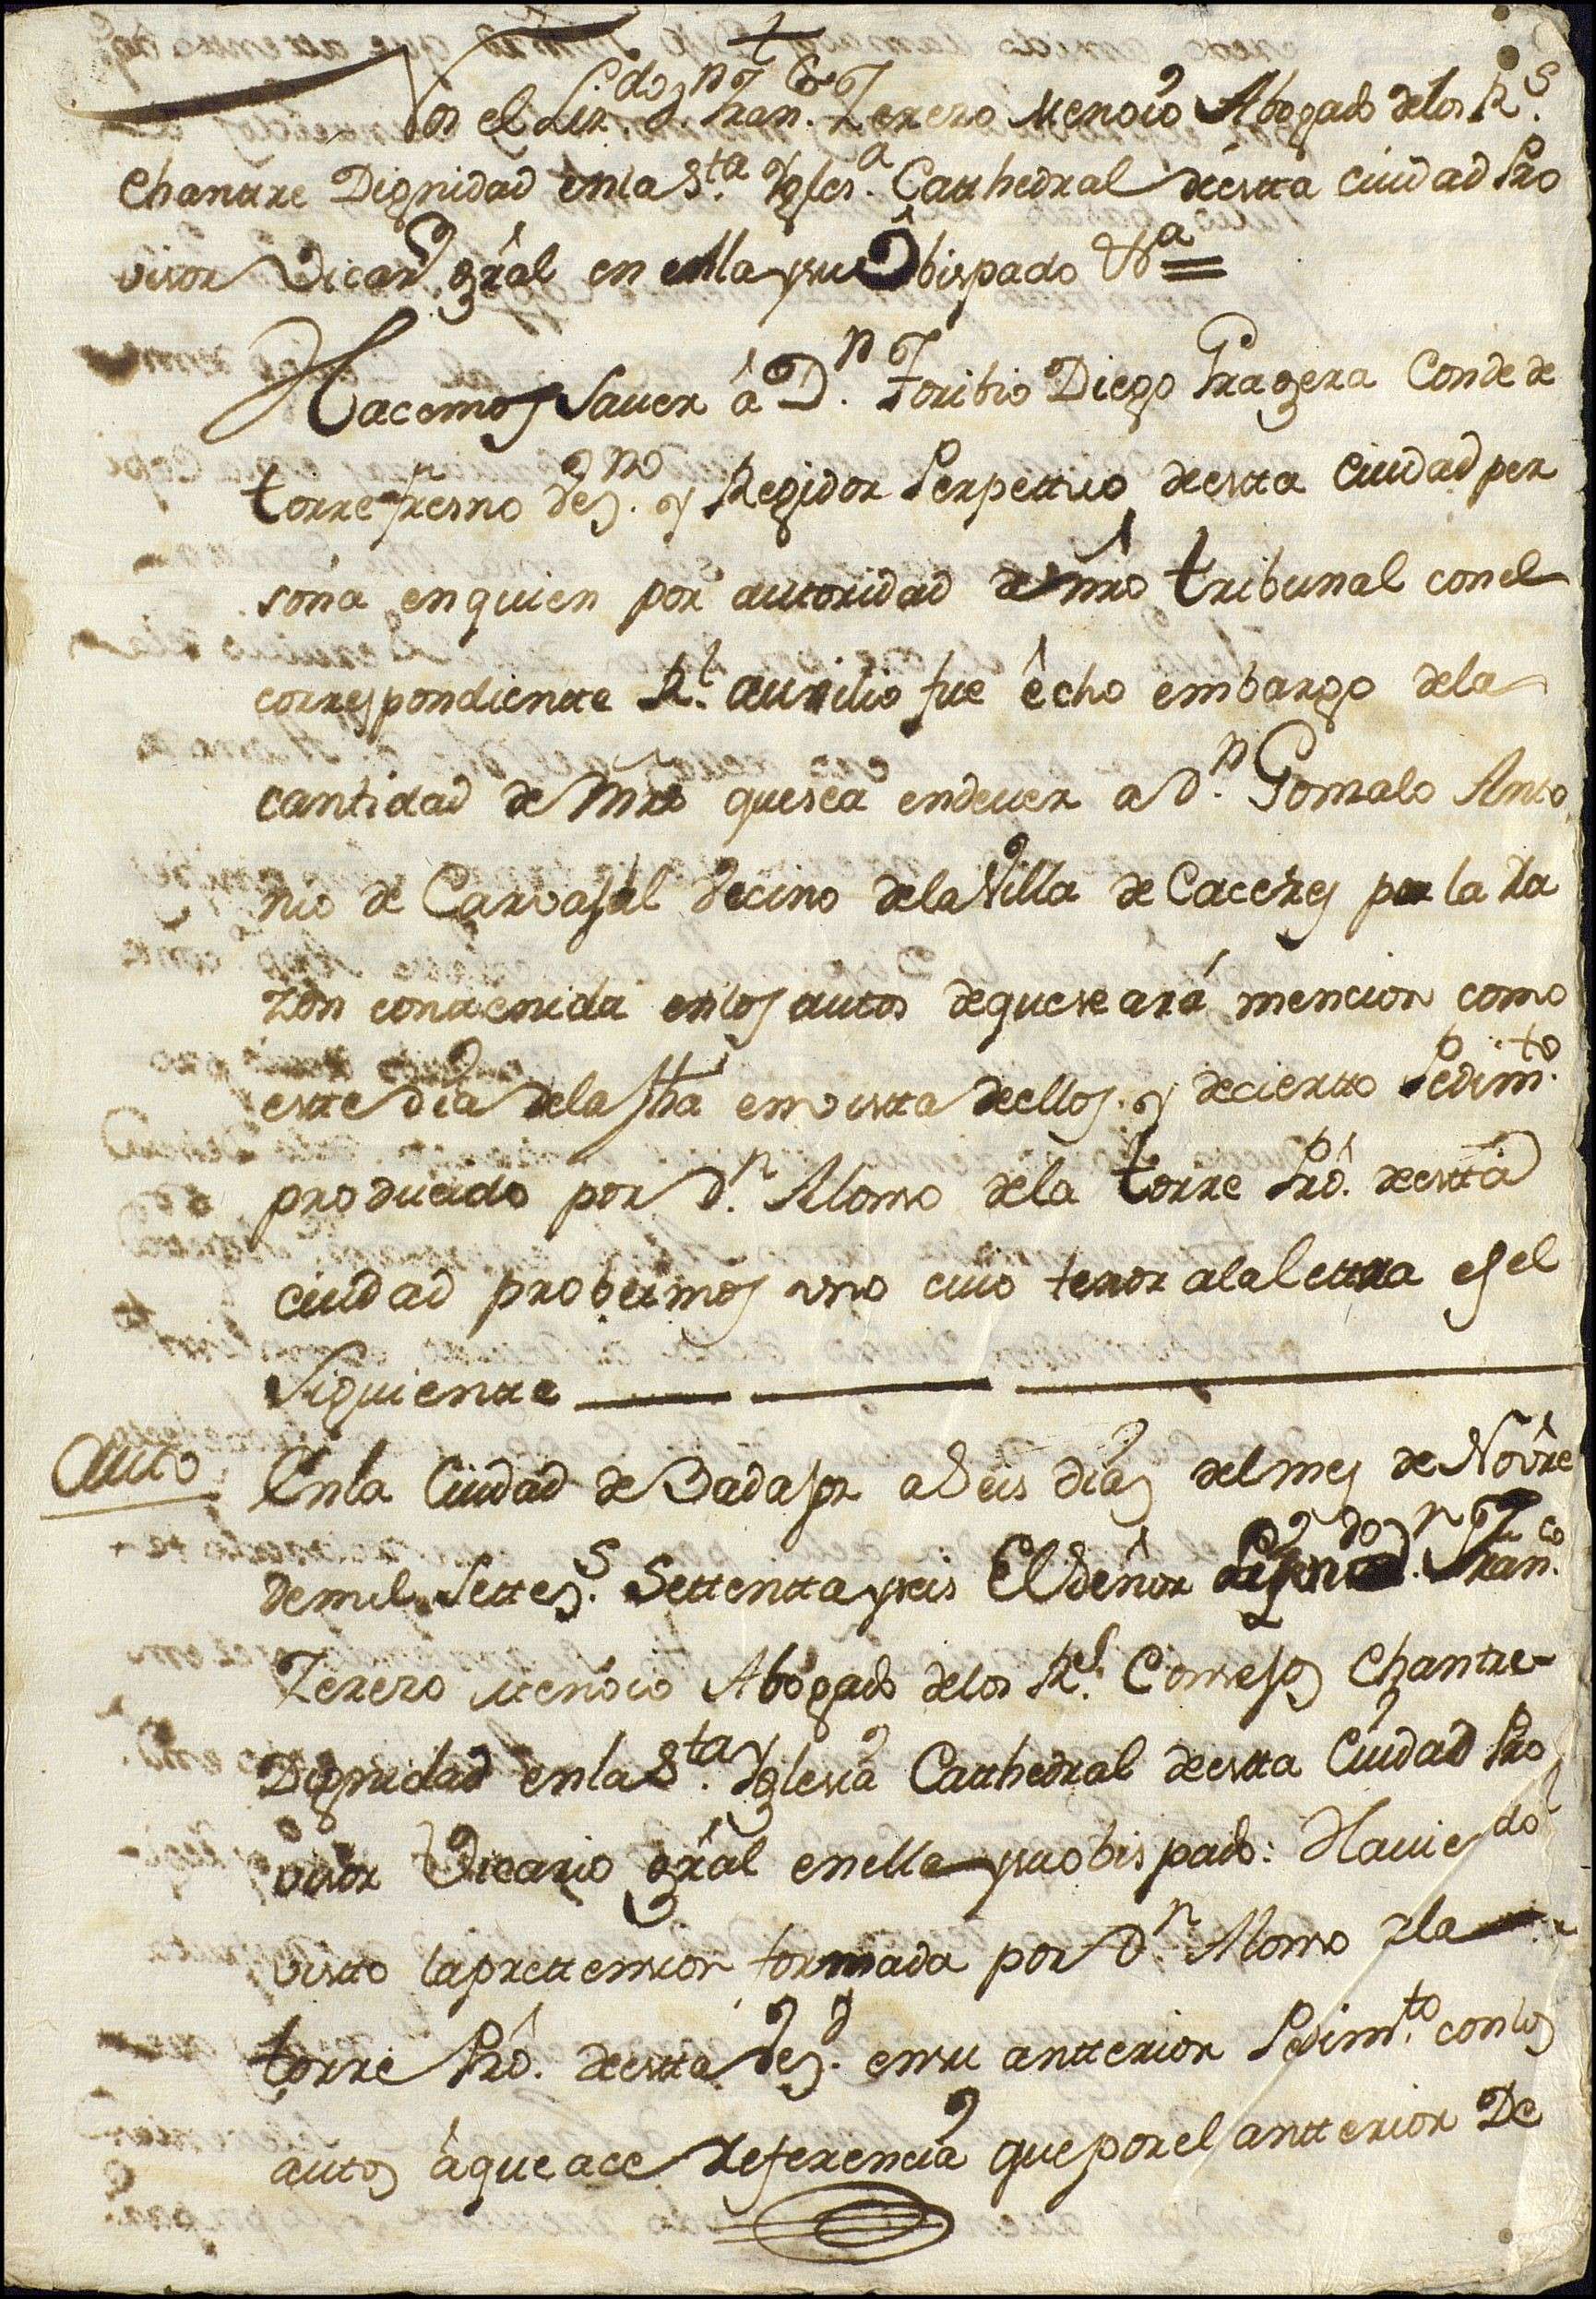 Nos el Liz.do D.n Fran.co Zerero Mencio Abogado delos R.s
Chantre Dignidad enla S.ta Ygles.a Catthedral deestta ciudad Pro
visor Vicar.o gràl en ella ysu Obispado &.a
Hacemos Saver â D.n Toribio Diego Gragera Conde de
torrefresno vez.no y Regidor Perpettuo deestta Ciudad per
sona enquien por autoridad de nrô tribunal conel
correspondientte R.l auxilio fue êcho embargo dela
cantidad de mrs quesea endever a D.n Gonzalo Anto
nio de Carvajal Vecino dela Villa de Caceres por la ra
zon conttenida enlos autos dequese ará mencion como
estte dia dela fha envistta deellos. y deciertto Pedim.to
producido por D.n Alonso dela torre Prô. deestta
ciudad probeimos uno cuio tenor alalettra es el
Siguientte
Auto
Enla Ciudad de Badajoz a Seis dias delmes de Novre
demil Settez.s Settentta yseis El Señor Lizen.do D.n Fran.co
Zerero Mencio Abogado delos R.s Consejos Chantre
Dignidad enla S.ta Yglesia Catthedral deestta Ciudad Pro
visor Vicario gràl enella ysuobispado: Haviendo
vistto laprettension formada por D.n Alonso dela
torre Prô. deestta vez.d ensu antterior Pedim.to conlos
autos âque ace referencia queporel antterior De